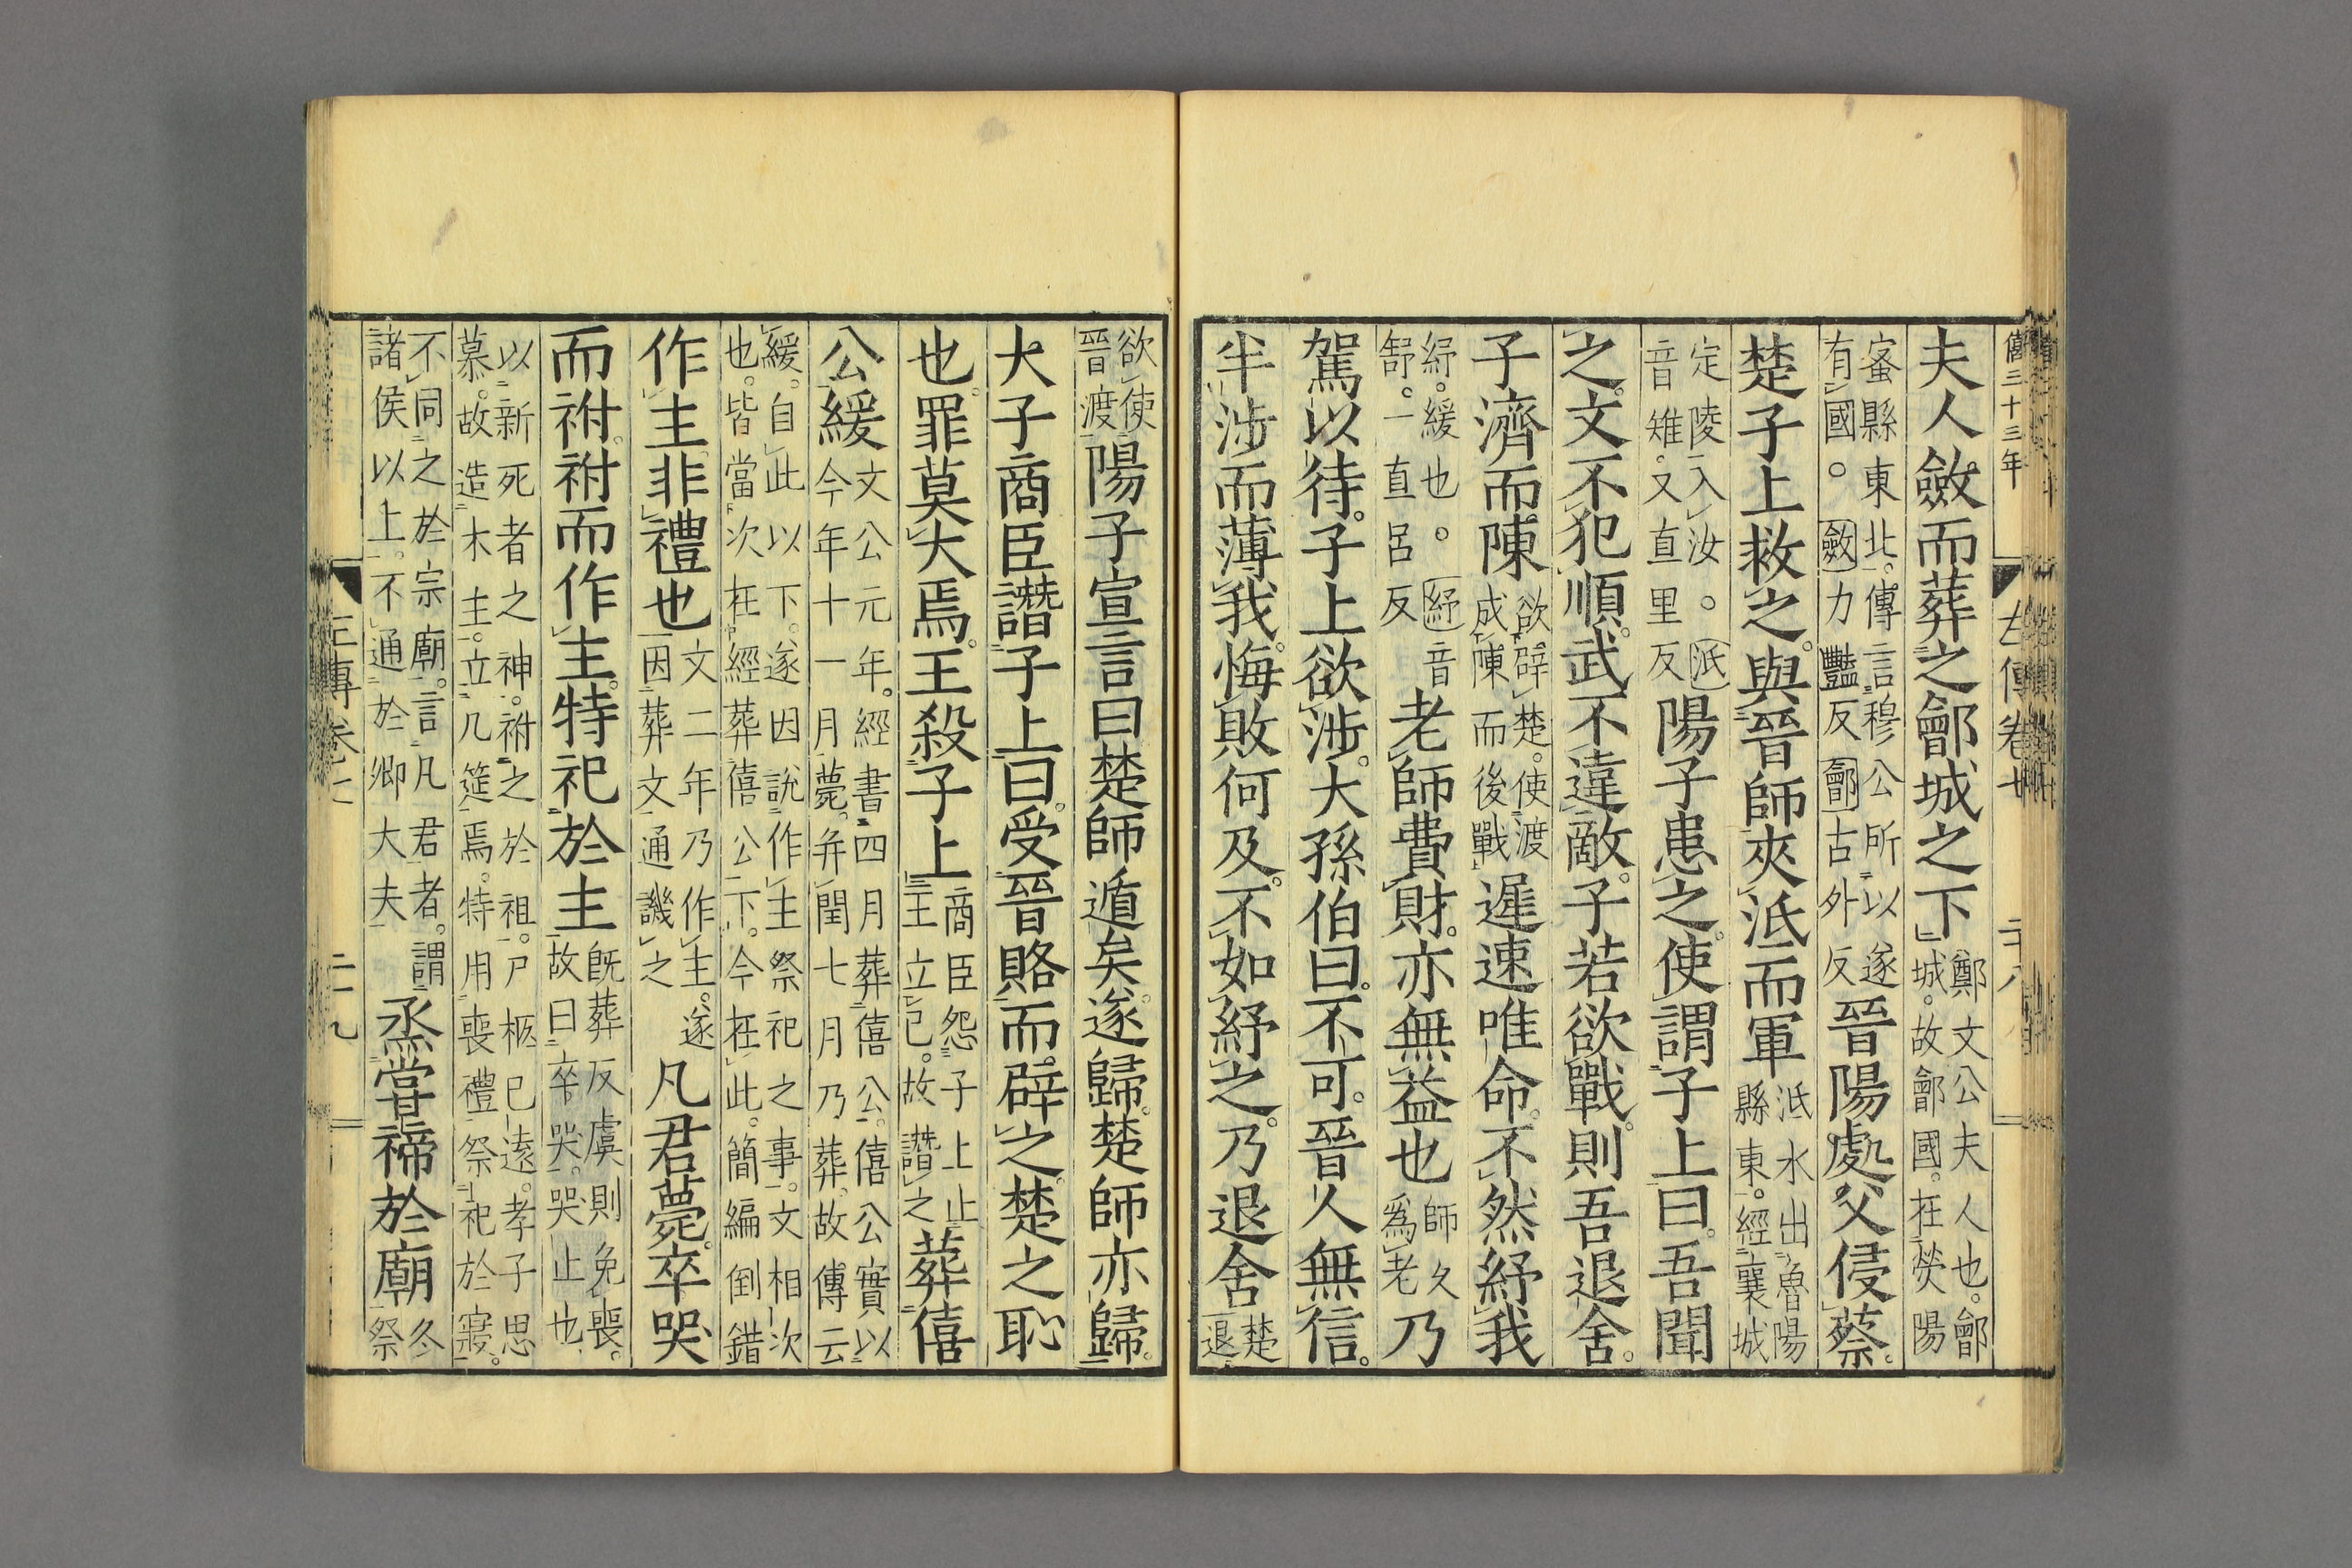 僖三十三年
左傳卷七
二十八
夫人斂而葬之鄶城之下鄭文公夫人也。鄶城。故鄶國。在滎陽
蜜縣東北。傳言穆公所以遂有國。斂力豔反鄶古外反晉陽處父侵蔡。
楚子上救之。與晉師夾泜而軍泜水出魯陽縣東。經襄城
定陵入汝。泜音雉。又直里反陽子患之。使謂子上曰。吾聞
之。文不犯順。武不違敵。子若欲戰。則吾退舍。
子濟而陳欲辟楚。使渡成陳而後戰遲速唯命。不然紓我
紓。緩也。紓音舒。一直呂反老師費財。亦無益也師久爲老乃
駕以待。子上欲涉。大孫伯曰。不可。晉人無信。
半涉而薄我。悔敗何及。不如紓之。乃退舍楚退。
欲使晉渡陽子宣言曰楚師遁矣。遂歸。楚師亦歸。
大子商臣譖子上曰。受晉賂而辟之。楚之恥
也。罪莫大焉。王殺子上商臣怨子上止王立已。故譖之葬僖
公緩文公元年。經書四月葬僖公。僖公實以今年十一月薨。并閏七月乃葬。故傳云
緩。自此以下。遂因說作主祭祀之事。文相次也。皆當次在經葬僖公下。今在此。簡編倒錯
作主非禮也文二年乃作主。遂因葬文通譏之凡君薨。卒哭
而祔。祔而作主。特祀於主既葬反虞則免喪。故曰卒哭。哭止也
以新死者之神。祔之於祖。尸柩已遠。孝子思慕。故造木主。立几筵焉。特用喪禮祭祀於寢。
不同之於宗廟。言凡君者。謂諸侯以上。不通於卿大夫烝嘗禘於廟冬祭
二十九